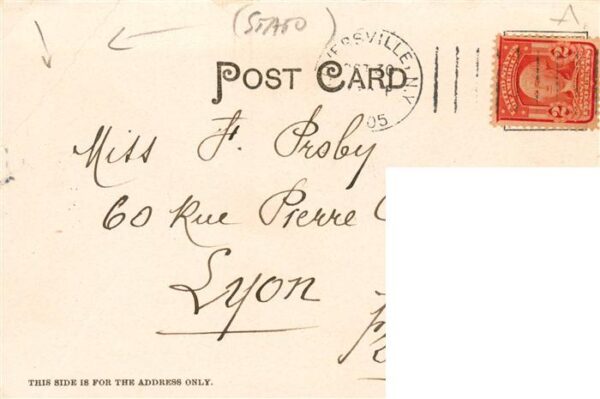 (STATO)
ERSVILLE, N.Y.
OCT 30
05
POST CARD
Miss F. Prsby
60 Rue Pierre
Lyon
THIS SIDE IS FOR THE ADDRESS ONLY.